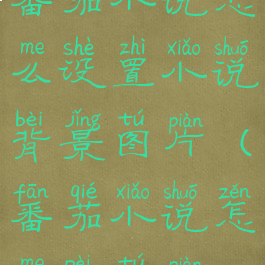 番茄小说怎
me shè zhì xiǎo shuō
么设置小说
bèi jǐng tú piàn
背景图片（
fān qié xiǎo shuō zěn
番茄小说怎
me pèi tú piàn